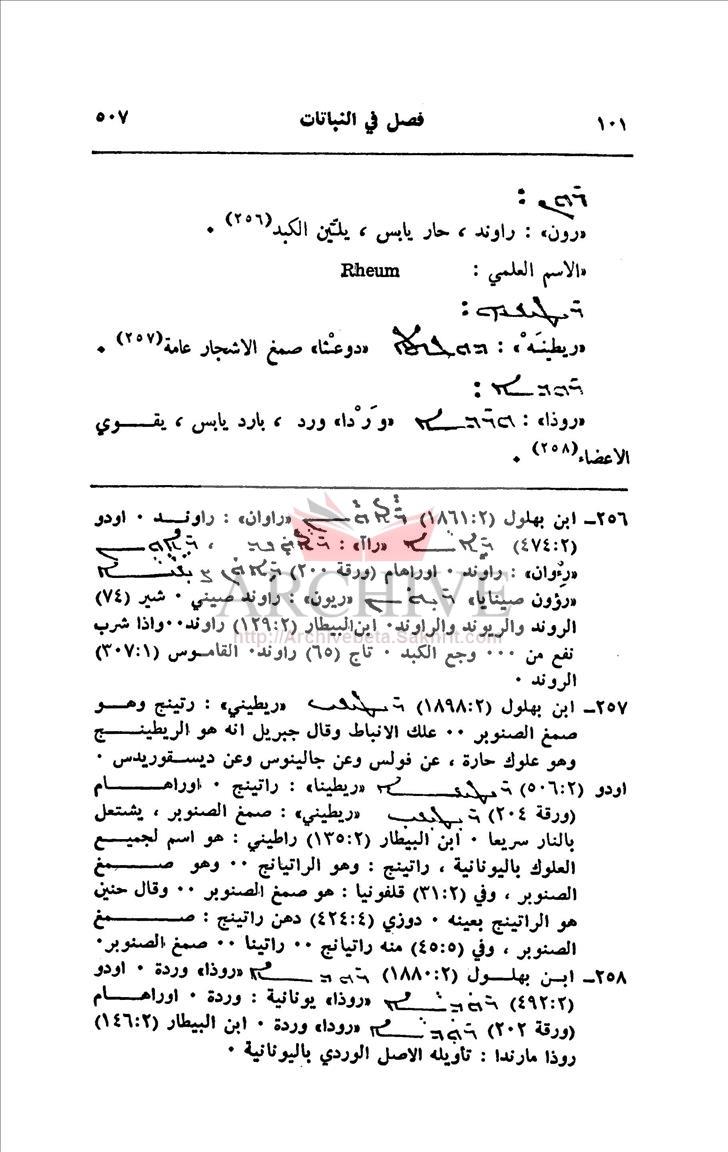 ١٠١ فصل في النباتات ٥٠٧
«رون» : راوند ، حار يابس ، يليّن الكبد(٢٥٦) ٠
«الاسم العلمي : Rheum
«ريطينَهْ» : «دوعتْا» صمغ الاشجار عامة(٢٥٧) ٠
«روذا» : «وَرْدا» ورد ، بارد يابس ، يقـــوي
الاعضاء(٢٥٨) ٠
٢٥٦ــ ابن بهلول (١٨٦١:٢) «راوان» : راونـد ٠ اودو
(٤٧٤:٢) «راآ» : ،
: راوند ٠ اوراهام (ورقة ٢٠٠)
«رؤون صينايا» «ريون» : راوند صيني ٠ شير (٧٤)
الروند والريوند والراوند٠ ابن البيطار (١٢٩:٢) راوند٠٠واذا شرب
نفع من ٠٠٠ وجع الكبد ٠ تاج (٦٥) راوند٠ القامـوس (٣٠٧:١)
الروند ٠
ARCHIVE
http://Archivebeta.Sakhrit.com
٢٥٧ــ ابن بهلول (١٨٩٨:٢) «ريطيني» : رتينج وهــو
صمغ الصنوبر ٠٠ علك الانباط وقال جبريل انه هو الريطينــج
وهو علوك حارة ، عن فولس وعن جالينوس وعن ديسـقوريدس ٠
اودو (٥٠٦:٢) «ريطينا» : راتينج ٠ اوراهــــام
(ورقة ٢٠٤) «ريطيني» : صمغ الصنوبر ، يشتعل
بالنار سريعا ٠ ابن البيطار (١٣٥:٢) راطيني : هو اسم لجميــع
العلوك باليونانية ، راتينج : وهو الراتيانج ٠٠ وهو صــــمغ
الصنوبر ، وفي (٣١:٢) قلفونيا : هو صمغ الصنوبر ٠٠ وقال حنين
هو الراتينج بعينه ٠ دوزي (٤٢٤:٤) دهن راتينج : صـــــمغ
الصنوبر ، وفي (٤٥:٥) منه راتيانج ٠٠ راتينا ٠٠ صمغ الصنوبر٠
٢٥٨ــ ابــن بهلـــول (١٨٨٠:٢) «روذا» وردة ٠ اودو
(٤٩٢:٢) «روذا» يونانية : وردة ٠ اوراهــــام
(ورقة ٢٠٢) «رودا» وردة ٠ ابن البيطار (١٤٦:٢)
روذا مارندا : تأويله الاصل الوردي باليونانية ٠